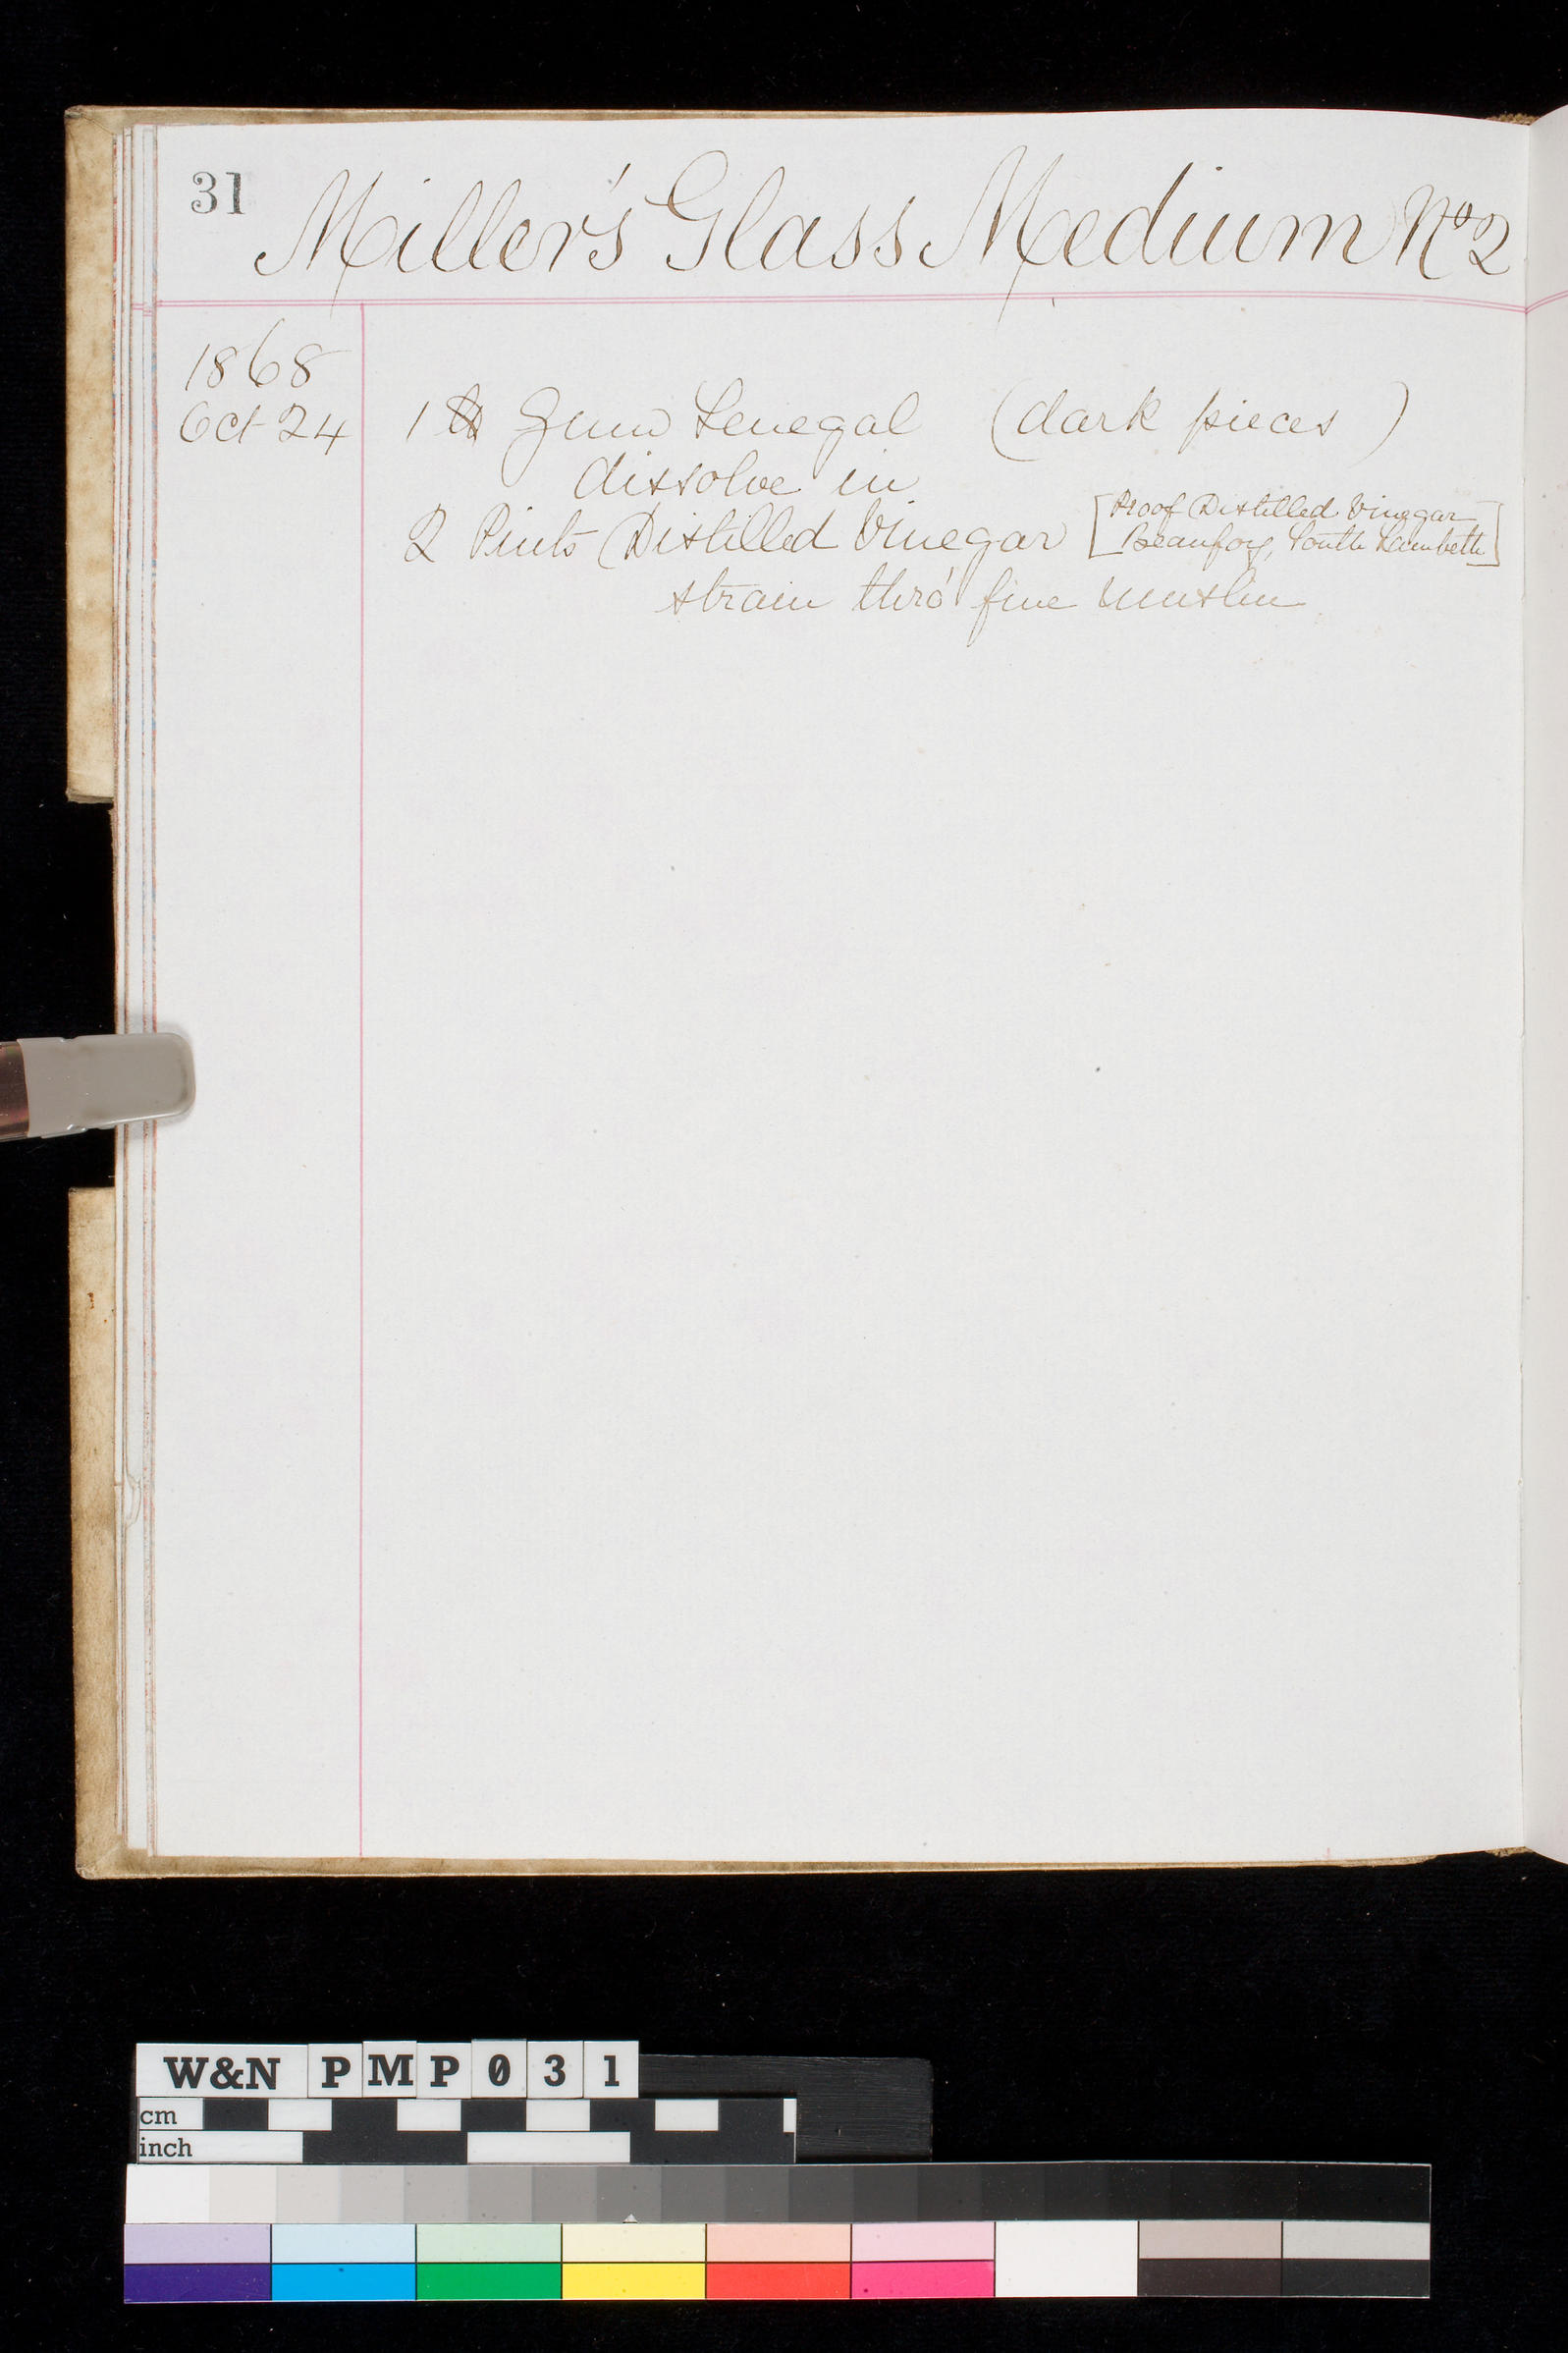 31
Miller's Glass Medium No 2
1868
Oct 24
1 ℔ Gum Senegal (dark pieces)
dissolve in
2 Pints Distilled Vinegar [Proof Distilled Vinegar
Beaufoy, South Lambeth]
strain thro' fine muslin
W&N PMP031
cm
inch